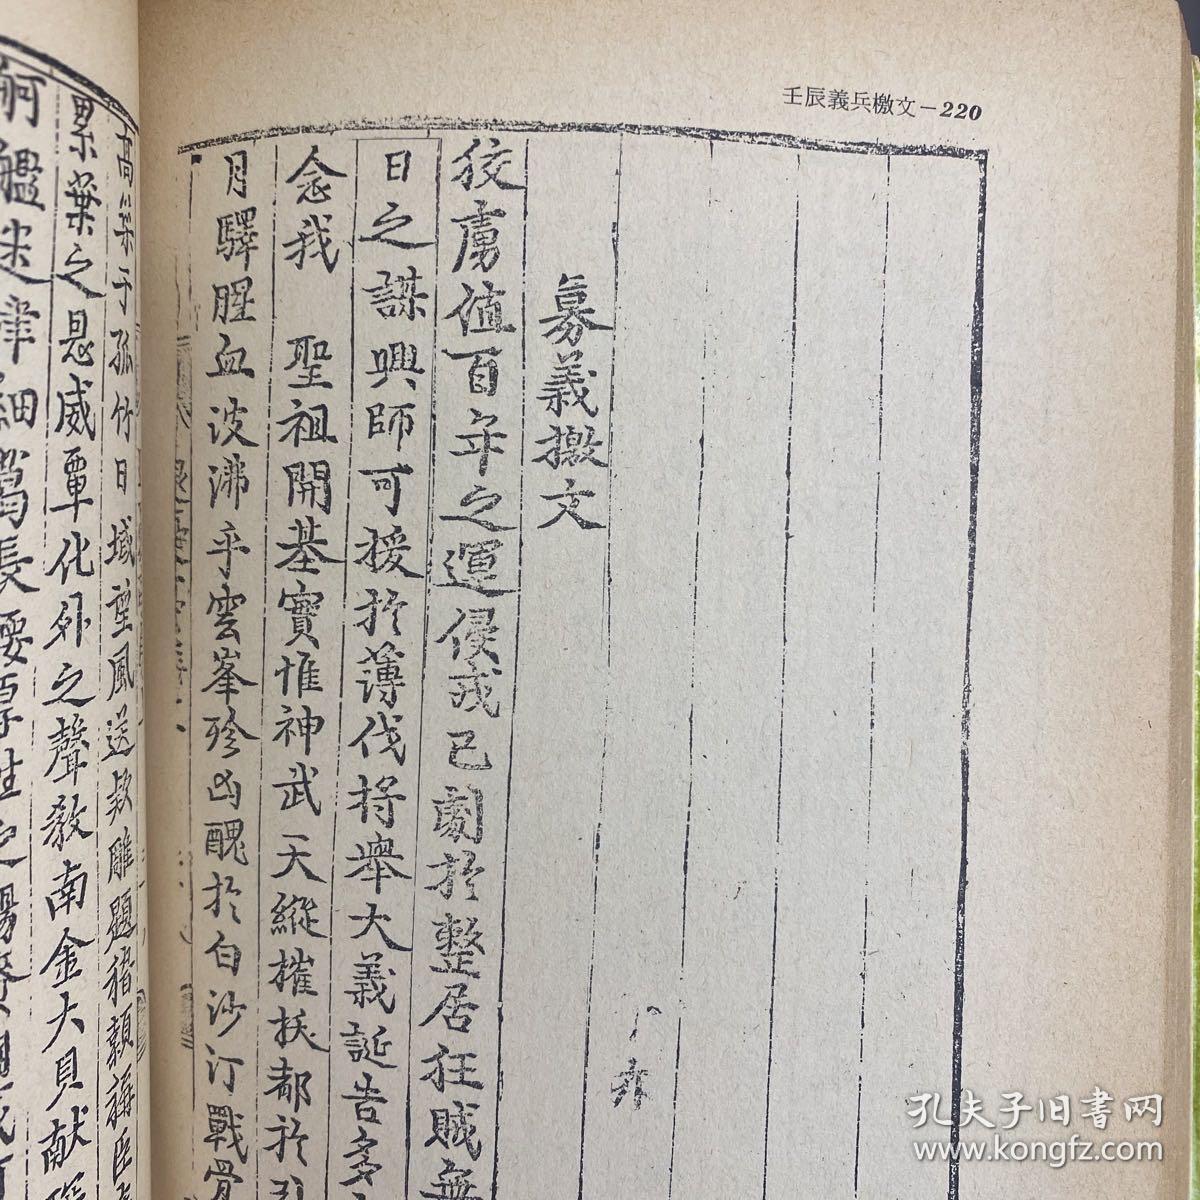 壬辰義兵檄文－220
募義檄文
狡虜値百年之運侵戎已劇於整居狂賊無
日之謀興師可援於薄伐將舉大義誕告多
念我　聖祖開基實惟神武天縱摧扶都於
月驛腥血波沸乎雲峯殄凶醜於白沙汀戰骨
高梁于孤竹日域望風送欵雕題稽顙
累葉之恩威覃化外之聲教南金大貝献
孔夫子旧书网
www.kongfz.com